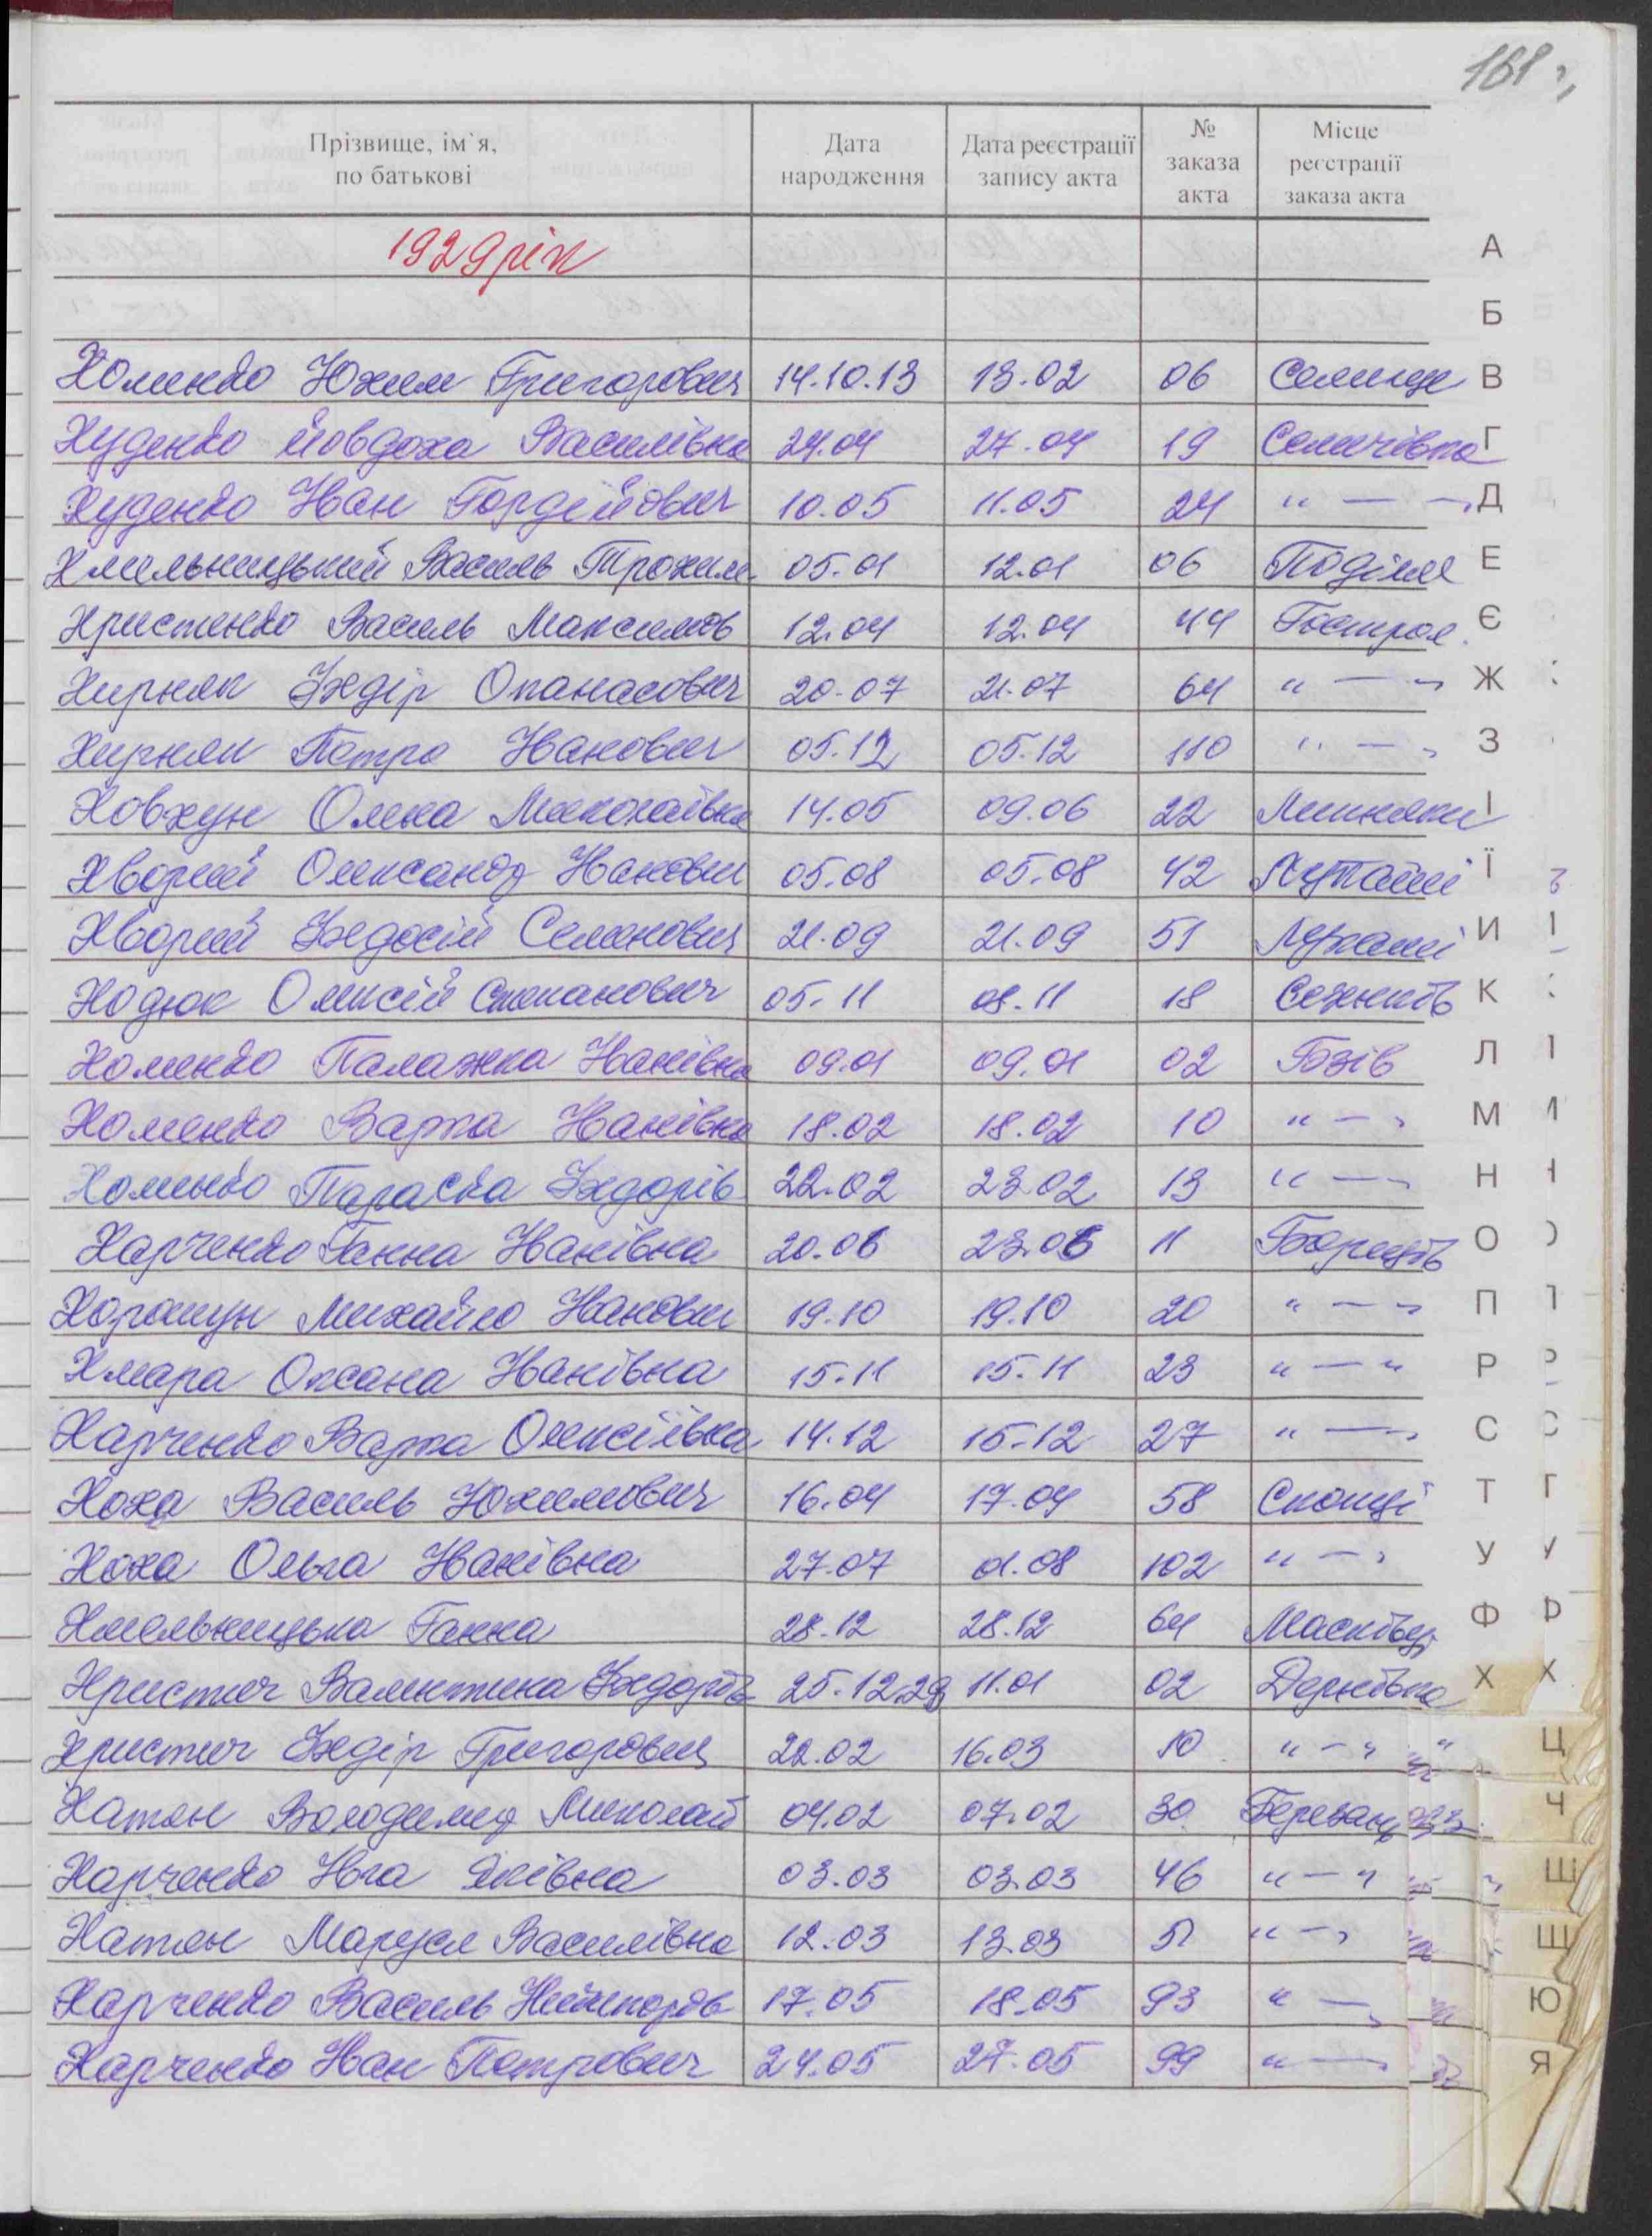 161
Прізвище, ім`я, по батькові Дата народження Дата реєстрації запису акта № заказа акта Місце реєстрації заказа акта
1929 рік
А
Б
Хоменко Юхим Григорович 14.10.13 13.02 06 Селище В
Худенко Йовдоха Василівна 24.04 27.04 19 Селичівка Г
Худенко Іван Гордійович 10.05 11.05 24 " — " Д
Хмельницький Василь Трохим 05.01 12.01 06 Поділля Е
Христенко Василь Максимов 12.04 12.04 44 Гостролю Є
Хирняк Федір Опанасович 20.07 21.07 64 " — " Ж
Хирняк Петро Іванович 05.12 05.12 110 " — " З
Ховхун Олека Миколаївна 14.05 09.06 22 Липняки І
Хворий Олександр Іванович 05.08 05.08 42 Ї
Хворий Федосій Семенович 21.09 21.09 51 И
Ходюк Олексій Степанович 05.11 08.11 18 К
Хоменко Палажка Іванівна 09.01 09.01 02 Гозів Л
Хоменко Варка Іванівна 18.02 18.02 10 " — " М
Хоменко Параска Федорів 22.02 23.02 13 " — " Н
Харченко Ганна Іванівна 20.06 23.06 11 Борщів О
Хорошун Михайло Іванович 19.10 19.10 20 " — " П
Хмара Оксана Іванівна 15.11 15.11 23 " — " Р
Харченко Варка Олексіївна 14.12 15.12 27 " — " С
Хоха Василь Юхимович 16.04 17.04 58 Скопці Т
Хоха Ольга Іванівна 27.07 01.08 102 " — " У
Хмельницька Ганна 28.12 28.12 64 Масківці Ф
Христич Валентина Федорів 25.12.28 11.01 02 Дернівка Х
Христич Федір Григорович 22.02 16.03 10 " — " Ц
Хатян Володимир Миколай 04.02 07.02 30 Березань Ч
Харченко Іва Яківна 03.03 03.03 46 " — " Ш
Хатян Маруся Василівна 12.03 13.03 51 " — " Щ
Харченко Василь Никифоров 17.05 18.05 93 " — " Ю
Харченко Іван Петрович 24.05 27.05 99 " — " Я